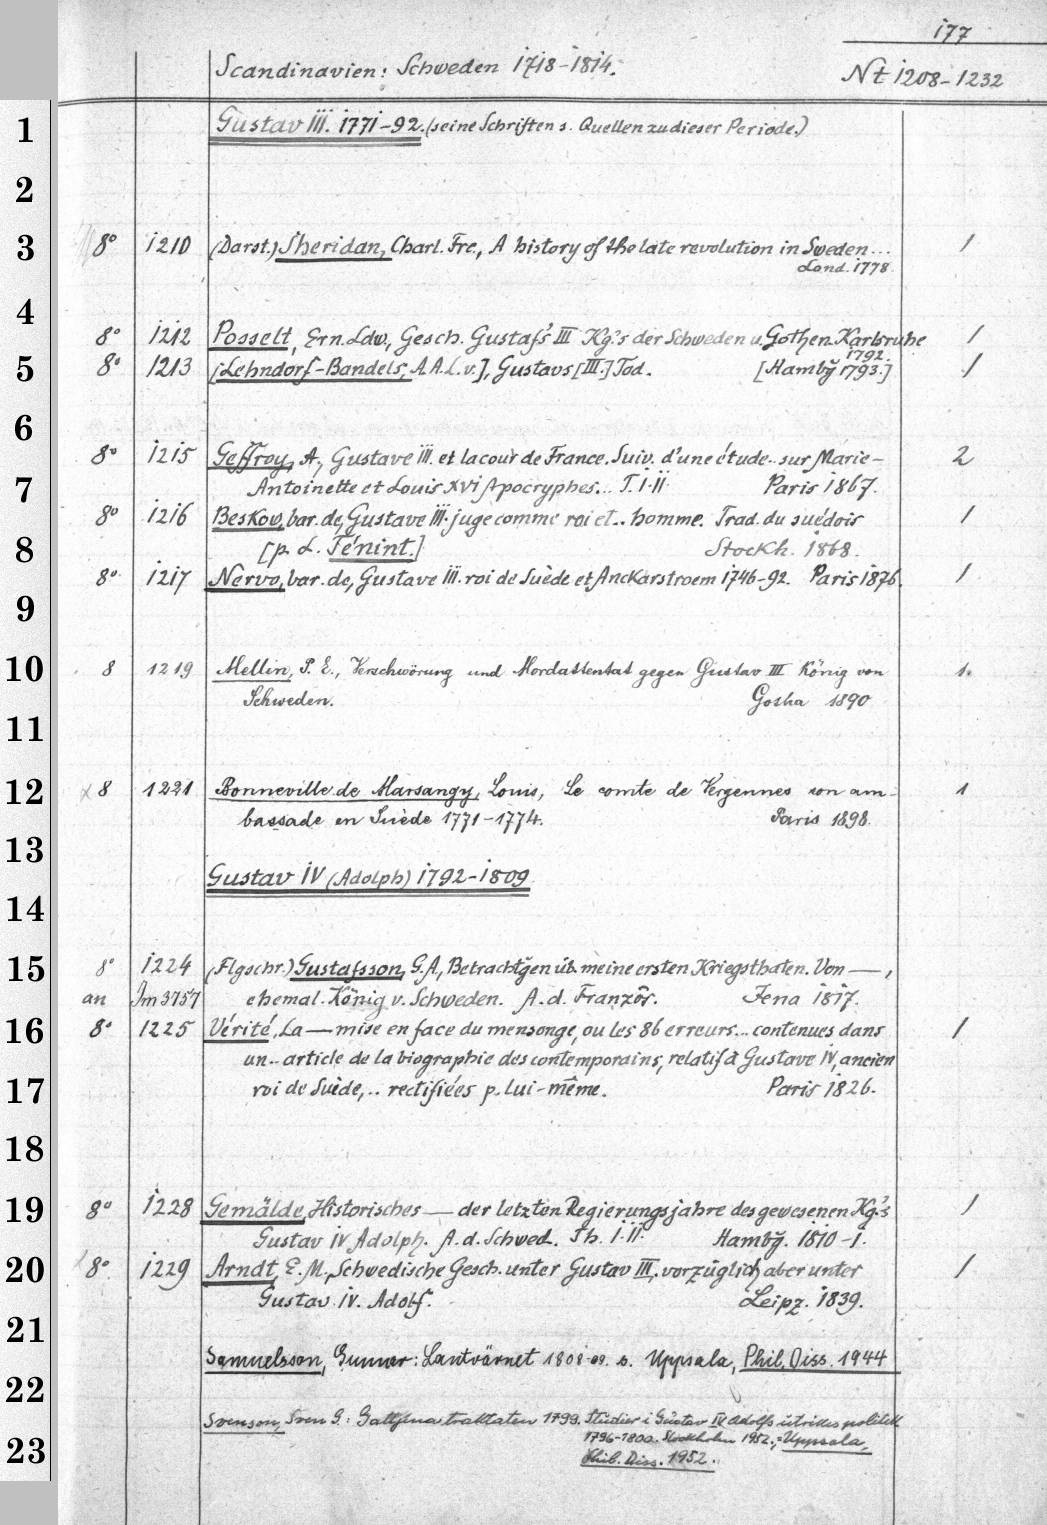 177
Scandinavien: Schweden 1718-1814.
Nt 1208-1232
1 Gustav III. 1771-92. (seine Schriften s. Quellen zu dieser Periode.)
2
3 8° 1210 (Darst.) Sheridan, Charl. Frc., A history of the late revolution in Sweden... 1
Lond. 1778.
4
8° 1212 Posselt, Ern. Ldw., Gesch. Gustafs's III Kg.'s der Schweden u. Gothen. Karlsruhe 1
1792.
5 8° 1213 [Lehndorf-Bandels, A. A. L. v.], Gustavs [III.] Tod. [Hambg 1793.] 1
6
8° 1215 Geffroy, A., Gustave III. et la cour de France. Suiv. d'une étude.. sur Marie- 2
7 Antoinette et Louis XVI Apocryphes... T. I-II. Paris 1867.
8° 1216 Beskow, bar. de, Gustave III. juge comme roi et.. homme. Trad. du suédois 1
8 [p. L. Ténint.] Stockh. 1868.
8° 1217 Nervo, bar. de, Gustave III. roi de Suède et Anckarstroem 1746-92. Paris 1876. 1
9
10 8 1219 Mellin, P. E., Verschwörung und Mordattentat gegen Gustav III König von 1.
Schweden. Gotha 1890
11
12 x 8 1221 Bonneville de Marsangy, Louis, Le comte de Vergennes son am- 1
bassade en Suède 1771-1774. Paris 1898.
13
Gustav IV (Adolph) 1792-1809
14
15 8° 1224 (Flgschr.) Gustafsson, G. A., Betrachtgen üb. meine ersten Kriegsthaten. Von —,
an Im 3757 ehemal. König v. Schweden. A. d. Französ. Jena 1817.
16 8° 1225 Vérité, La — mise en face du mensonge, ou les 86 erreurs... contenues dans 1
un.. article de la biographie des contemporains, relatif à Gustave IV, ancien
17 roi de Suède, .. rectifiées p. lui-même. Paris 1826.
18
19 8° 1228 Gemälde, Historisches — der letzten Regierungsjahre des gewesenen Kg.'s 1
Gustav IV Adolph. A. d. Schwed. Th. I-II. Hambg. 1810-1.
20 8° 1229 Arndt, E. M., Schwedische Gesch. unter Gustav III., vorzüglich aber unter 1
Gustav IV. Adolf. Leipz. 1839.
21
Samuelsson, Gunnar: Lantvärnet 1808-09. s. Uppsala, Phil. Diss. 1944
22
Svenson, Sven G.: Gattjinatraktaten 1799. Studier i Gustav IV Adolfs utrikespolitik
1796-1800. Stockholm 1952.; = Uppsala,
23 Phil. Diss. 1952.